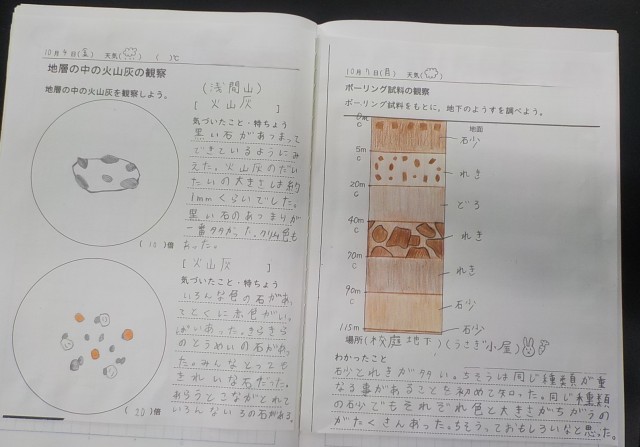 10月4日(金) 天気( ) ( )℃
地層の中の火山灰の観察
地層の中の火山灰を観察しよう。
(浅間山)
[ 火山灰 ]
気づいたこと・特ちょう
黒い石があつまって
できているようにみ
えた。火山灰のだい
たいの大きさは約
1mmくらいでした。
黒い石のあつまりが
一番多かった。クリーム色も
あった。
(10)倍
[火山灰 ]
気づいたこと・特ちょう
いろんな色の石があ
ってとくに赤色がい
がいあった。きらきら
のとうめいの石があ
った。みんなとっても
きれいな石だった。
あらうとこながとれて
いろんないろの石がある。
(20)倍
10月7日(月) 天気( )
ボーリング試料の観察
ボーリング試料をもとに、地下のようすを調べよう。
地面
0m
C
石少
5m
C
れき
20m
C
どろ
40m
C
れき
70m
C
れき
90m
C
石少
115m
石少
場所(校庭地下)(うさぎ小屋)
わかったこと
石少とれきが多い。ちそうは同じ種類が重
なる事があることを初めて知った。同じ種類
の石少でもそれぞれ色と大きさがちがうの
がたくさんあった。ちそうっておもしろいなと思った。